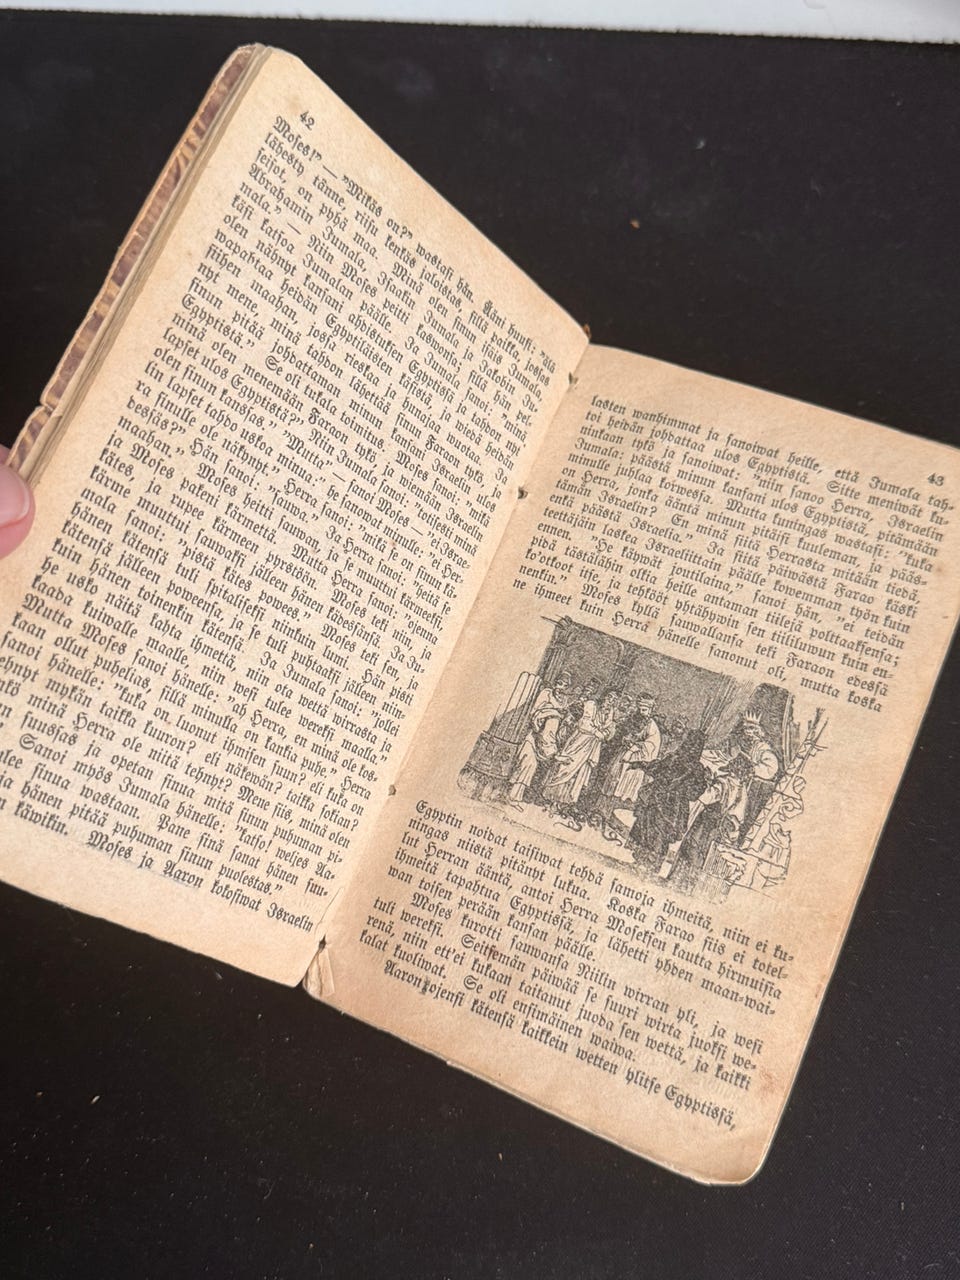 42
Moses!" — "Mikäs on?" wastasi hän. Ääni huusi: "älä
lähesty tänne, riisu kenkäs jaloistas, sillä paikka, jossas
seisot, on pyhä maa. Minä olen sinun isäis Jumala,
Abrahamin Jumala, Isaakin Jumala ja Jakobin Ju-
mala." — Niin Moses peitti kaswonsa; sillä hän pel-
käsi katsoa Jumalan päälle. Ja Jumala sanoi: "minä
olen nähnyt kansani ahdistuksen Egyptissä ja tahdon nyt
wapahtaa heidän Egyptiläisten käsistä, ja wiedä heidän
siihen maahan, jossa rieskaa ja hunajaa wuotaa. Ja
nyt mene, minä tahdon lähettää sinun Faraon tykö, ja
sinun pitää johdattaman minun kansani Israelin ulos
Egyptistä." Se oli tukala toimitus. Moses sanoi: "mikä
minä olen menemään Faraon tykö ja wiemään Israelin
lapset ulos Egyptistä?" Niin Jumala sanoi: "totisesti minä
olen sinun kanssas." "Mutta" — sanoi Moses — "ei Israe-
lin lapset tahdo uskoa minua." he sanowat minulle: "ei Her-
ra sinulle ole näkynyt." Herra sanoi: "mikä se on sinun kä-
dessäs?" Hän sanoi: "sauwa." Ja Herra sanoi: "heitä se
maahan." Moses heitti sauwan, ja se muuttui kärmeeksi,
ja Moses pakeni kärmettä. Mutta Herra sanoi: "ojenna
kätes, ja rupee kärmeen pyrstöön. Moses teki niin, ja
kärme muuttui sauwaksi jälleen hänen kädessänsä. Ja Ju-
mala sanoi: "pistä kätes powees." Moses teki sen, ja
hänen kätensä tuli spitaliseksi niinkuin lumi. Hän pisti
kätensä jälleen poweensa, ja se tuli puhtaaksi jälleen niin-
kuin hänen toinenkin kätensä. Ja Jumala sanoi: "jollei
he usko näitä kahta ihmettä, niin ota wettä wirrasta ja
kaada kuiwalle maalle, niin wesi tulee wereksi maalla."
Mutta Moses sanoi hänelle: "ah Herra, en minä ole kos-
kaan ollut puhelias, sillä minulla on kankia puhe." Herra
sanoi hänelle: "kuka on luonut ihmisen suun? eli kuka on
tehnyt mykän taikka kuuron? eli näkewän? taikka sokian?
enkö minä Herra ole niitä tehnyt? Mene siis, minä olen
suussas ja opetan sinua mitä sinun puhuman pi-
Sanoi myös Jumala hänelle: "katso! weljes Aa-
tulee sinua wastaan. Pane sinä sanat hänen suu-
ja hänen pitää puhuman sinun puolestas."
käwikin. Moses ja Aaron kokosiwat Israelin
43
lasten wanhimmat ja sanoiwat heille, että Jumala tah-
toi heidän johdattaa ulos Egyptistä. Sitte meniwät ku-
ninkaan tykö ja sanoiwat: "niin sanoo Herra, Israelin
Jumala: päästä minun kansani ulos Egyptistä, pitämään
minulle juhlaa korwessa. Mutta kuningas wastasi: "kuka
on Herra, jonka ääntä minun pitäisi kuuleman, ja pääs-
tämän Israelin? En minä siitä Herrasta mitään tiedä,
enkä päästä Israelia." Ja siitä päiwästä Farao käski
teettäjäin laskea Israeliitain päälle kowemman työn kuin
ennen. "He käywät joutilaina," sanoi hän, "ei teidän
pidä tästälähin olkia heille antaman tiilejä polttaaksensa;
ko'otkoot itse, ja tehkööt yhtähywin sen tiililuwun kuin en-
nenkin." Moses kyllä sauwallansa teki Faraon edessä
ne ihmeet kuin Herra hänelle sanonut oli, mutta koska
Egyptin noidat taisiwat tehdä samoja ihmeitä, niin ei ku-
ningas niistä pitänyt lukua. Koska Farao siis ei totel-
lut Herran ääntä, antoi Herra Moseksen kautta hirmuisia
ihmeitä tapahtua Egyptissä, ja lähetti yhden maan-wai-
wan toisen perään kansan päälle.
Moses kurotti sauwansa Niilin wirran yli, ja wesi
tuli wereksi. Seitsemän päiwää se suuri wirta juoksi we-
renä, niin ett'ei kukaan taitanut juoda sen wettä, ja kaikki
kalat kuoliwat. Se oli ensimäinen waiwa.
Aaron ojensi kätensä kaikkein wetten ylitse Egyptissä,